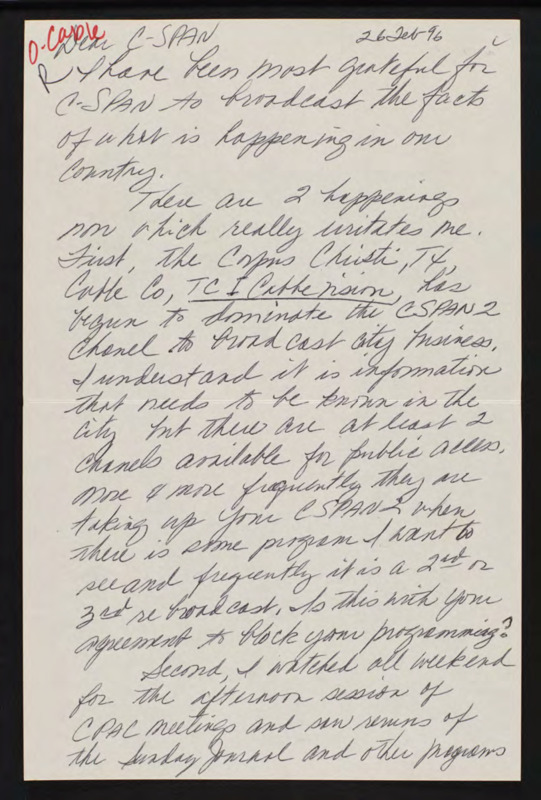 O-Cable
R
Dear C-SPAN 26 Feb 96
I have been most grateful for
C-SPAN to broadcast the facts
of what is happening in our
country.
There are 2 happenings
now which really irritates me.
First, the Corpus Christi, TX,
Cable Co, TCI Cablevision, has
begun to dominate the CSPAN 2
Chanel to broad cast city business.
I understand it is information
that needs to be known in the
city but there are at least 2
chanels available for public access.
More & more frequently they are
taking up your CSPAN 2 when
there is some program I want to
see and frequently it is a 2nd or
3rd re broadcast. Is this with your
agreement to block your programming?
Second, I watched all weekend
for the afternoon session of
CPAC meetings and saw reruns of
the Sunday Journal and other programs